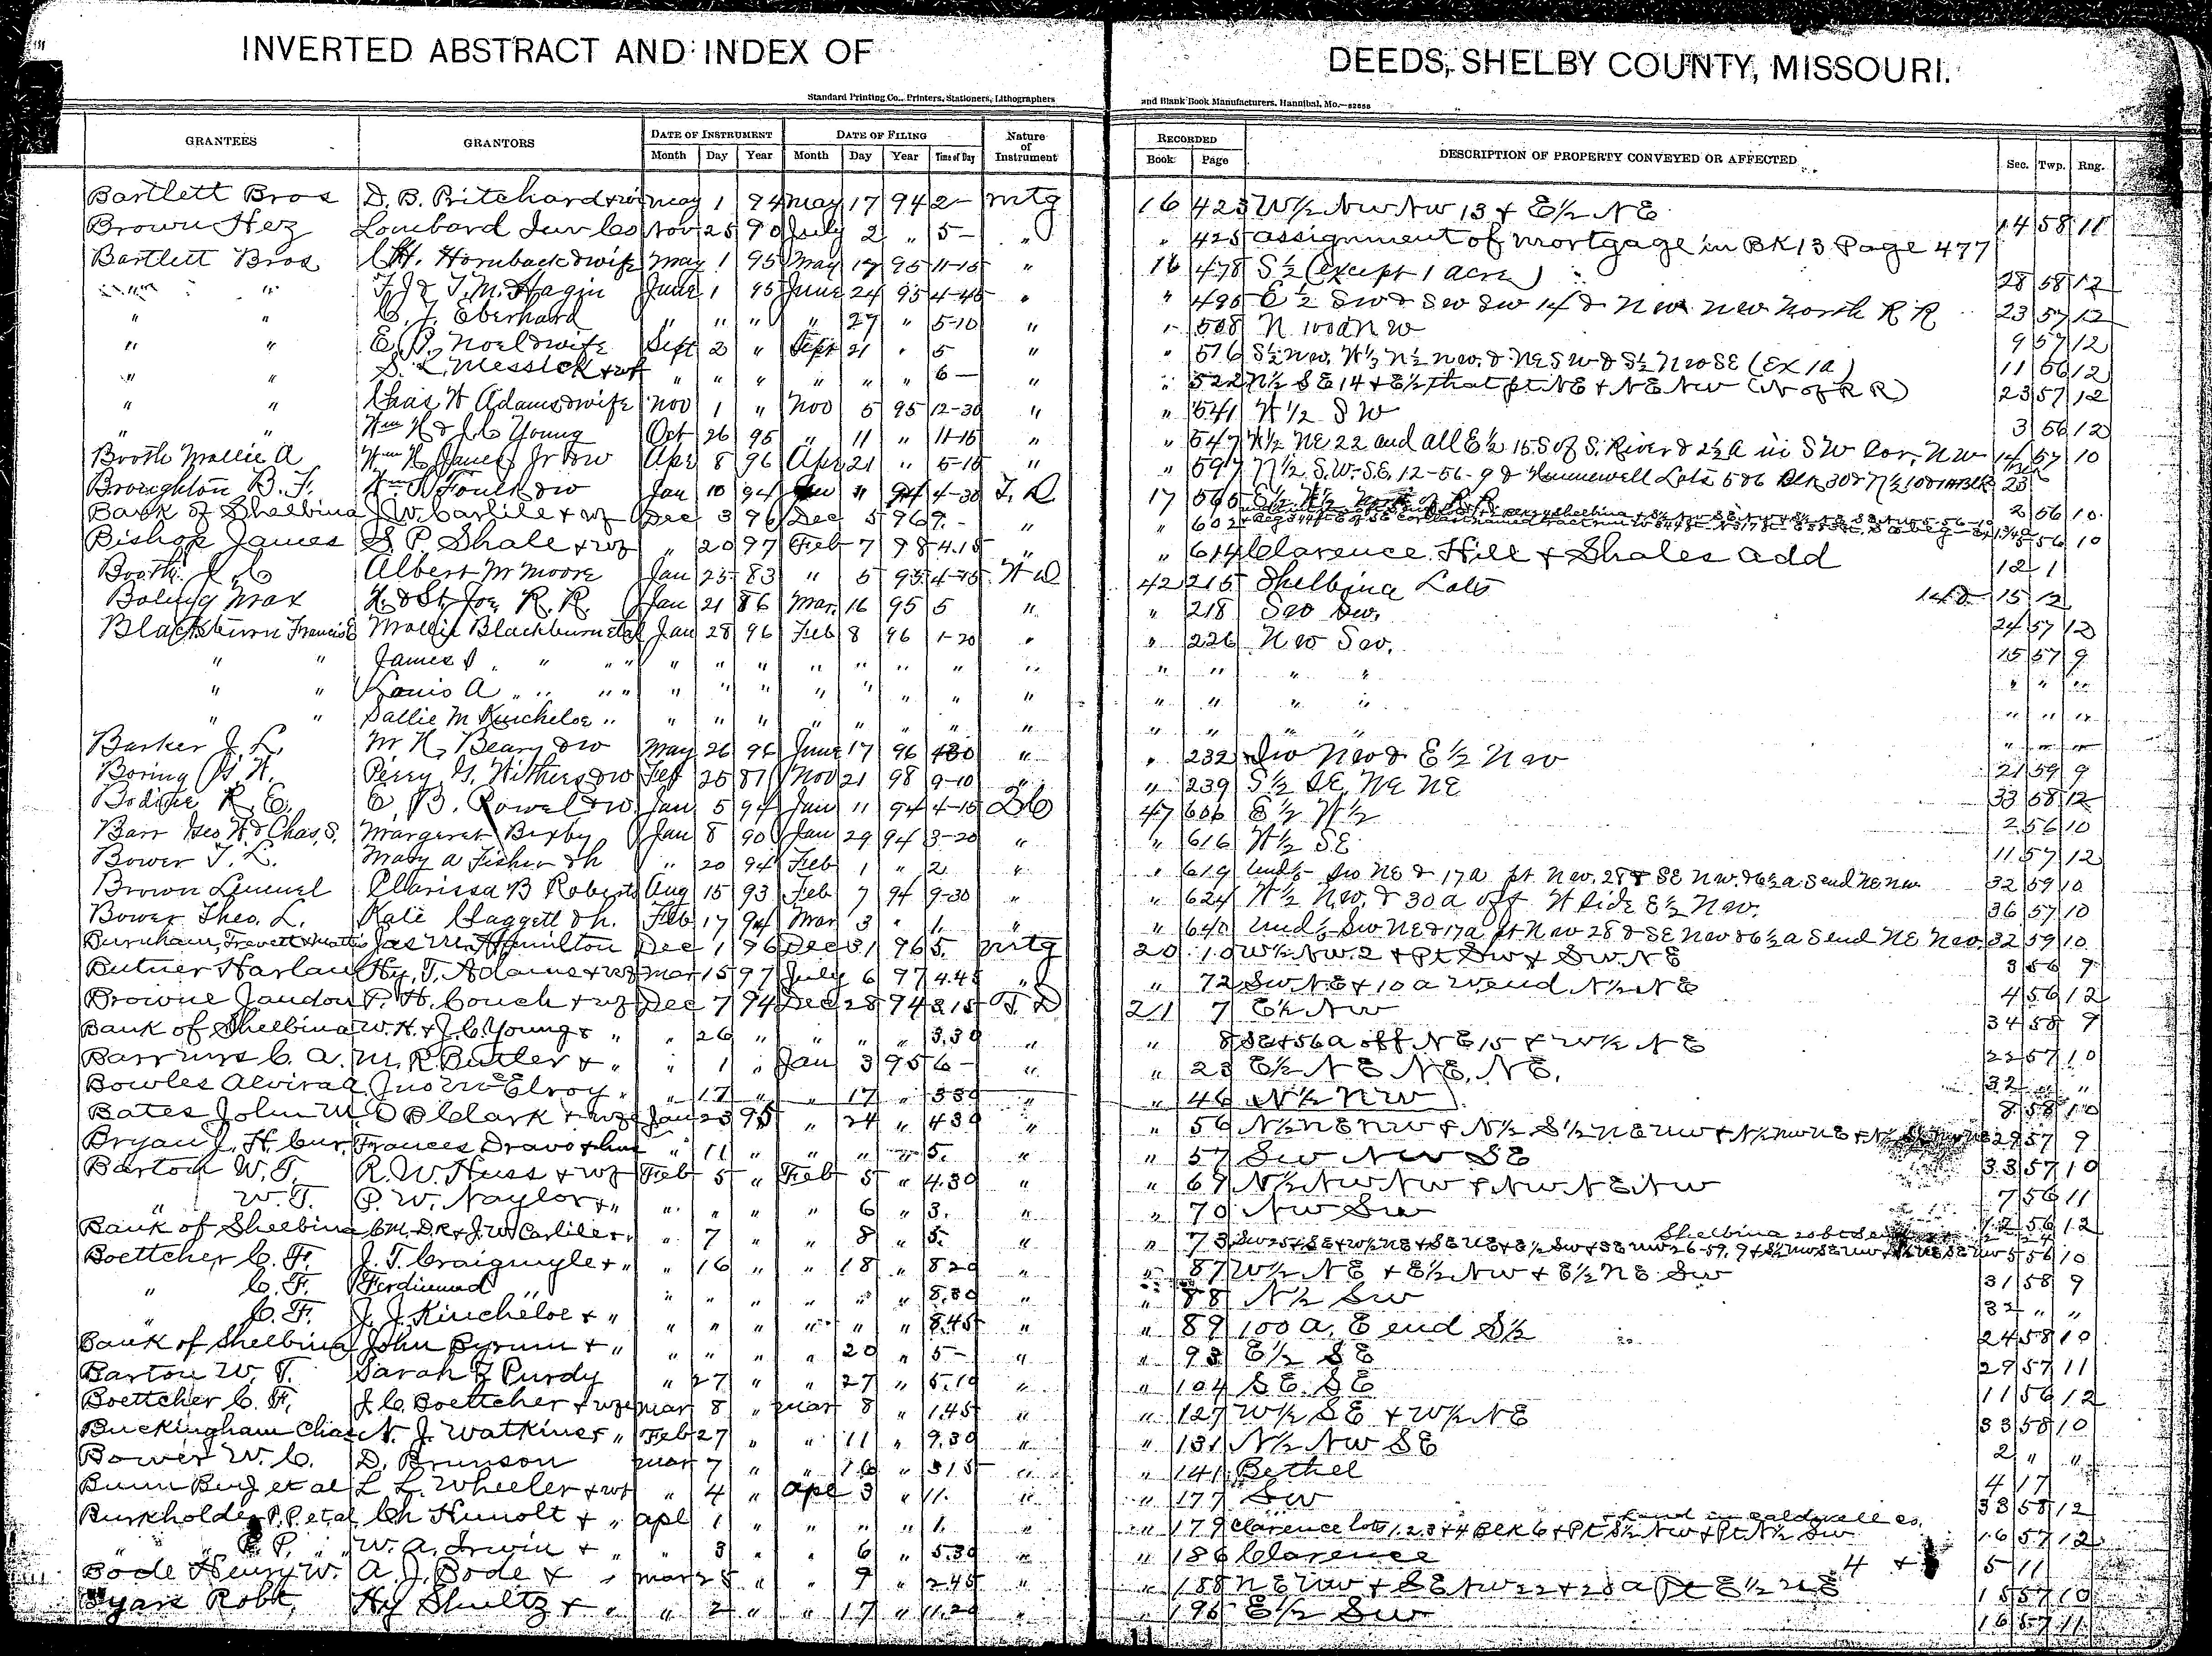 INVERTED ABSTRACT AND INDEX OF DEEDS, SHELBY COUNTY, MISSOURI.
Standard Printing Co., Printers, Stationers, Lithographers and Blank Book Manufacturers, Hannibal, Mo.
GRANTEES GRANTORS DATE OF INSTRUMENT DATE OF FILING Nature of Instrument RECORDED DESCRIPTION OF PROPERTY CONVEYED OR AFFECTED Sec. Twp. Rng.
Month Day Year Month Day Year Time of Day Book Page
Bartlett Bros D. B. Pritchard & wi May 1 94 May 17 94 2- Mtg 16 423 W½ NW NW 13 & E½ NE 14 58 11
Brown Hez Lombard Inv Co Nov 25 90 July 2 " 5- " " 425 assignment of mortgage in BK 13 Page 477
Bartlett Bros C.H. Hornback & wife May 1 95 May 17 95 11-15 " 16 478 S½ (except 1 acre) 28 58 12
" " F. J & T. M. Hagin June 1 95 June 24 95 4-45 " " 495 E½ SW & SW SW 14 & NW NW North R R 23 57 12
" " C. J. Eberhard " " " " 27 " 5-10 " " 508 N 100a NW 9 57 12
" " E. P. Noel & wife Sept 2 " Sept 21 " 5 " " 516 11 56 12
" " S. L. Messick & wf " " " " " " 6- " " 522 N½ SE 14 & E½ that pt NE & NE NW (N of R R) 23 57 12
" " Chas W Adams & wife Nov 1 " Nov 5 95 12-30 " " 541 W½ SW 3 56 12
" " Wm H & J. C Young Oct 26 95 " 11 " 11-15 " " 547 W½ NE 22 and all E½ 15 S of S. River & 2½ a in SW Cor. NW 14 57 10
Booth Mollie A Wm H Janes Jr & w Apr 8 96 Apr 21 " 5-15 " " 597 N½ S.W. S.E. 12-56-9 & Hunnewell Lots
Broughton B. F. Wm Foulk & w Jan 10 94 Jan 11 94 4-30 T. D. 17 565 E½ W½ North of R. R. 2 56 10
Bank of Shelbina J. W. Carlile & wf Dec 3 96 Dec 5 96 9.- " " 602 56 10
Bishop James S. P. Shale & wf " 20 97 Feb 7 98 4.15 " " 614 Clarence Hill & Shales add 12 1
Booth J. C Albert M Moore Jan 25 83 " 5 95 W D 42 215 Shelbina Lots 14 & 15 12
Boling Max H. & St. Joe R. R. Jan 21 86 Mar. 16 95 5 " " 218 SW SW. 24 57 12
Blackburn Francis E Mollie Blackburn et al Jan 28 96 Feb 8 96 1-20 " " 226 NW SW. 15 57 9
" " James " " " " " " " " " " " " " " " " " "
" " Louis A " " " " " " " " " " " " " " " " " "
" " Sallie M Kincheloe " " " " " " " " " " " " " " " "
Barker J. L. M H. Beary & w May 26 96 June 17 96 " " 232 SW NW & E½ NW 21 59 9
Boring Perry G. Withers & w Feb 25 87 Nov 21 98 9-10 " " 239 S½ SE NE NE 33 58 12
Bodine R. E. E. B. Powel & w Jan 5 94 Jan 11 94 4-15 47 606 E½ W½ 2 56 10
Barr Geo W & Chas. S. Margaret Bixby Jan 8 90 Jan 29 94 3-20 " " 616 W½ SE 11 57 12
Bower T. L. Mary A Fisher & h " 20 94 Feb 1 " 2 " " 619 SW NE & 17a pt NW. 28 & SE NW. & 6½ a S end NE NW 32 59 10
Brown Lemuel Clarissa B Roberts Aug 15 93 Feb 7 94 9-30 " " 624 W½ NW. & 30 a off W side E½ NW. 36 57 10
Bower Theo. L. Kate Claggett & h. Feb 17 94 Mar 3 " 1. " " 640 SW NE & 17a pt NW 28 & SE NW & 6½ a S end NE NW. 32 59 10
Burnham, Jas M. Hamilton Dec 1 96 Dec 31 96 5. Mtg 20 10 W½ NW. 2 & Pt SW & SW. NE 3 56 9
Butner Harlan Hy. T. Adams & wf Mar 15 97 July 6 97 4.45 " " 72 SW NE & 10 a W end N½ NE 4 56 12
Browne Jaudon P. H. Couch & wf Dec 7 94 Dec 28 94 3.15 T. D 21 7 E½ NW 34 58 9
Bank of Shelbina W. H. & J. C. Young & " " 26 " " " " 3.30 " " 8 SE & 56 a off NE 15 & W½ NE 22 57 10
Barr Mrs C. A. M. R. Butler & " " 1 " Jan 3 95 6- " " 23 E½ NE NE. NE. 32 " "
Bowles Alvira A Jno McElroy " " 17 " " 17 " 3 30 " " 46 N½ NW 8 58 10
Bates John M. O B Clark & wf Jan 23 95 " 24 " 4 30 " " 56 29 57 9
Bryan J. H. Cur. Frances Dravo & hus " 11 " " " " 5. " " 57 SW NW SE 33 57 10
Barton W. T. R. W. Huss & wf Feb 5 " Feb 5 " 4.30 " " 69 N½ NW NW & NW NE NW 7 56 11
" W. T. P. W. Naylor & " " " " " 6 " 3. " " 70 NW SW 12 56 12
Bank of Shelbina C. M., D. R & J. W. Carlile & " " 7 " " 8 " 5. " " 73 Shelbina 5 56 10
Boettcher C. F. J. T. Craigmyle & " " 16 " " 18 " 8 20 " " 87 W½ NE & E½ NW & E½ NE SW 31 58 9
" C. F. Ferdinand " " " " " " " 8.30 " " 88 N½ SW 32 " "
" C. F. J. J. Kincheloe & " " " " " " " 8.45 " " 89 100 a. E end S½ 24 58 10
Bank of Shelbina John Byrum & " " " " " 20 " 5- " " 93 E½ SE 29 57 11
Barton W. T. Sarah F Purdy " 27 " " 27 " 5.10 " " 104 SE. SE 11 56 12
Boettcher C. F. J. C. Boettcher & wf Mar 8 " Mar 8 " 1.45 " " 127 W½ SE & W½ NE 33 58 10
Buckingham Chas N. J. Watkins & " Feb 27 " " 11 " 9.30 " " 131 N½ NW SE 2 " "
Bower W. C. D. Brunson Mar 7 " " 16 " 3 15 " " 141 Bethel 4 17
Bunn Benj et al L L. Wheeler & wf " 4 " Apl 3 " 11. " " 177 SW 33 58 12
Burkholder P. P. et al Ch Hunolt & " Apl 1 " " " " 1. " " 179 Clarence lots 1, 2, 3 & 4 Blk 6 & Pt S½ NW & Pt N½ SW & Land in Caldwell co. 16 57 12
" P. P. " W. A. Irwin & " " 3 " " 6 " 5.30 " " 186 Clarence 4 & 5 11
Bode Henry W. A. J. Bode & " Mar 25 " " 9 " 2.45 " " 188 NE NW & SE NW 22 & 28 a Pt E½ NE 15 57 10
Byars Robt. Hy Shultz & " " 2 " " 17 " 11.20 " " 196 E½ SW 16 57 11